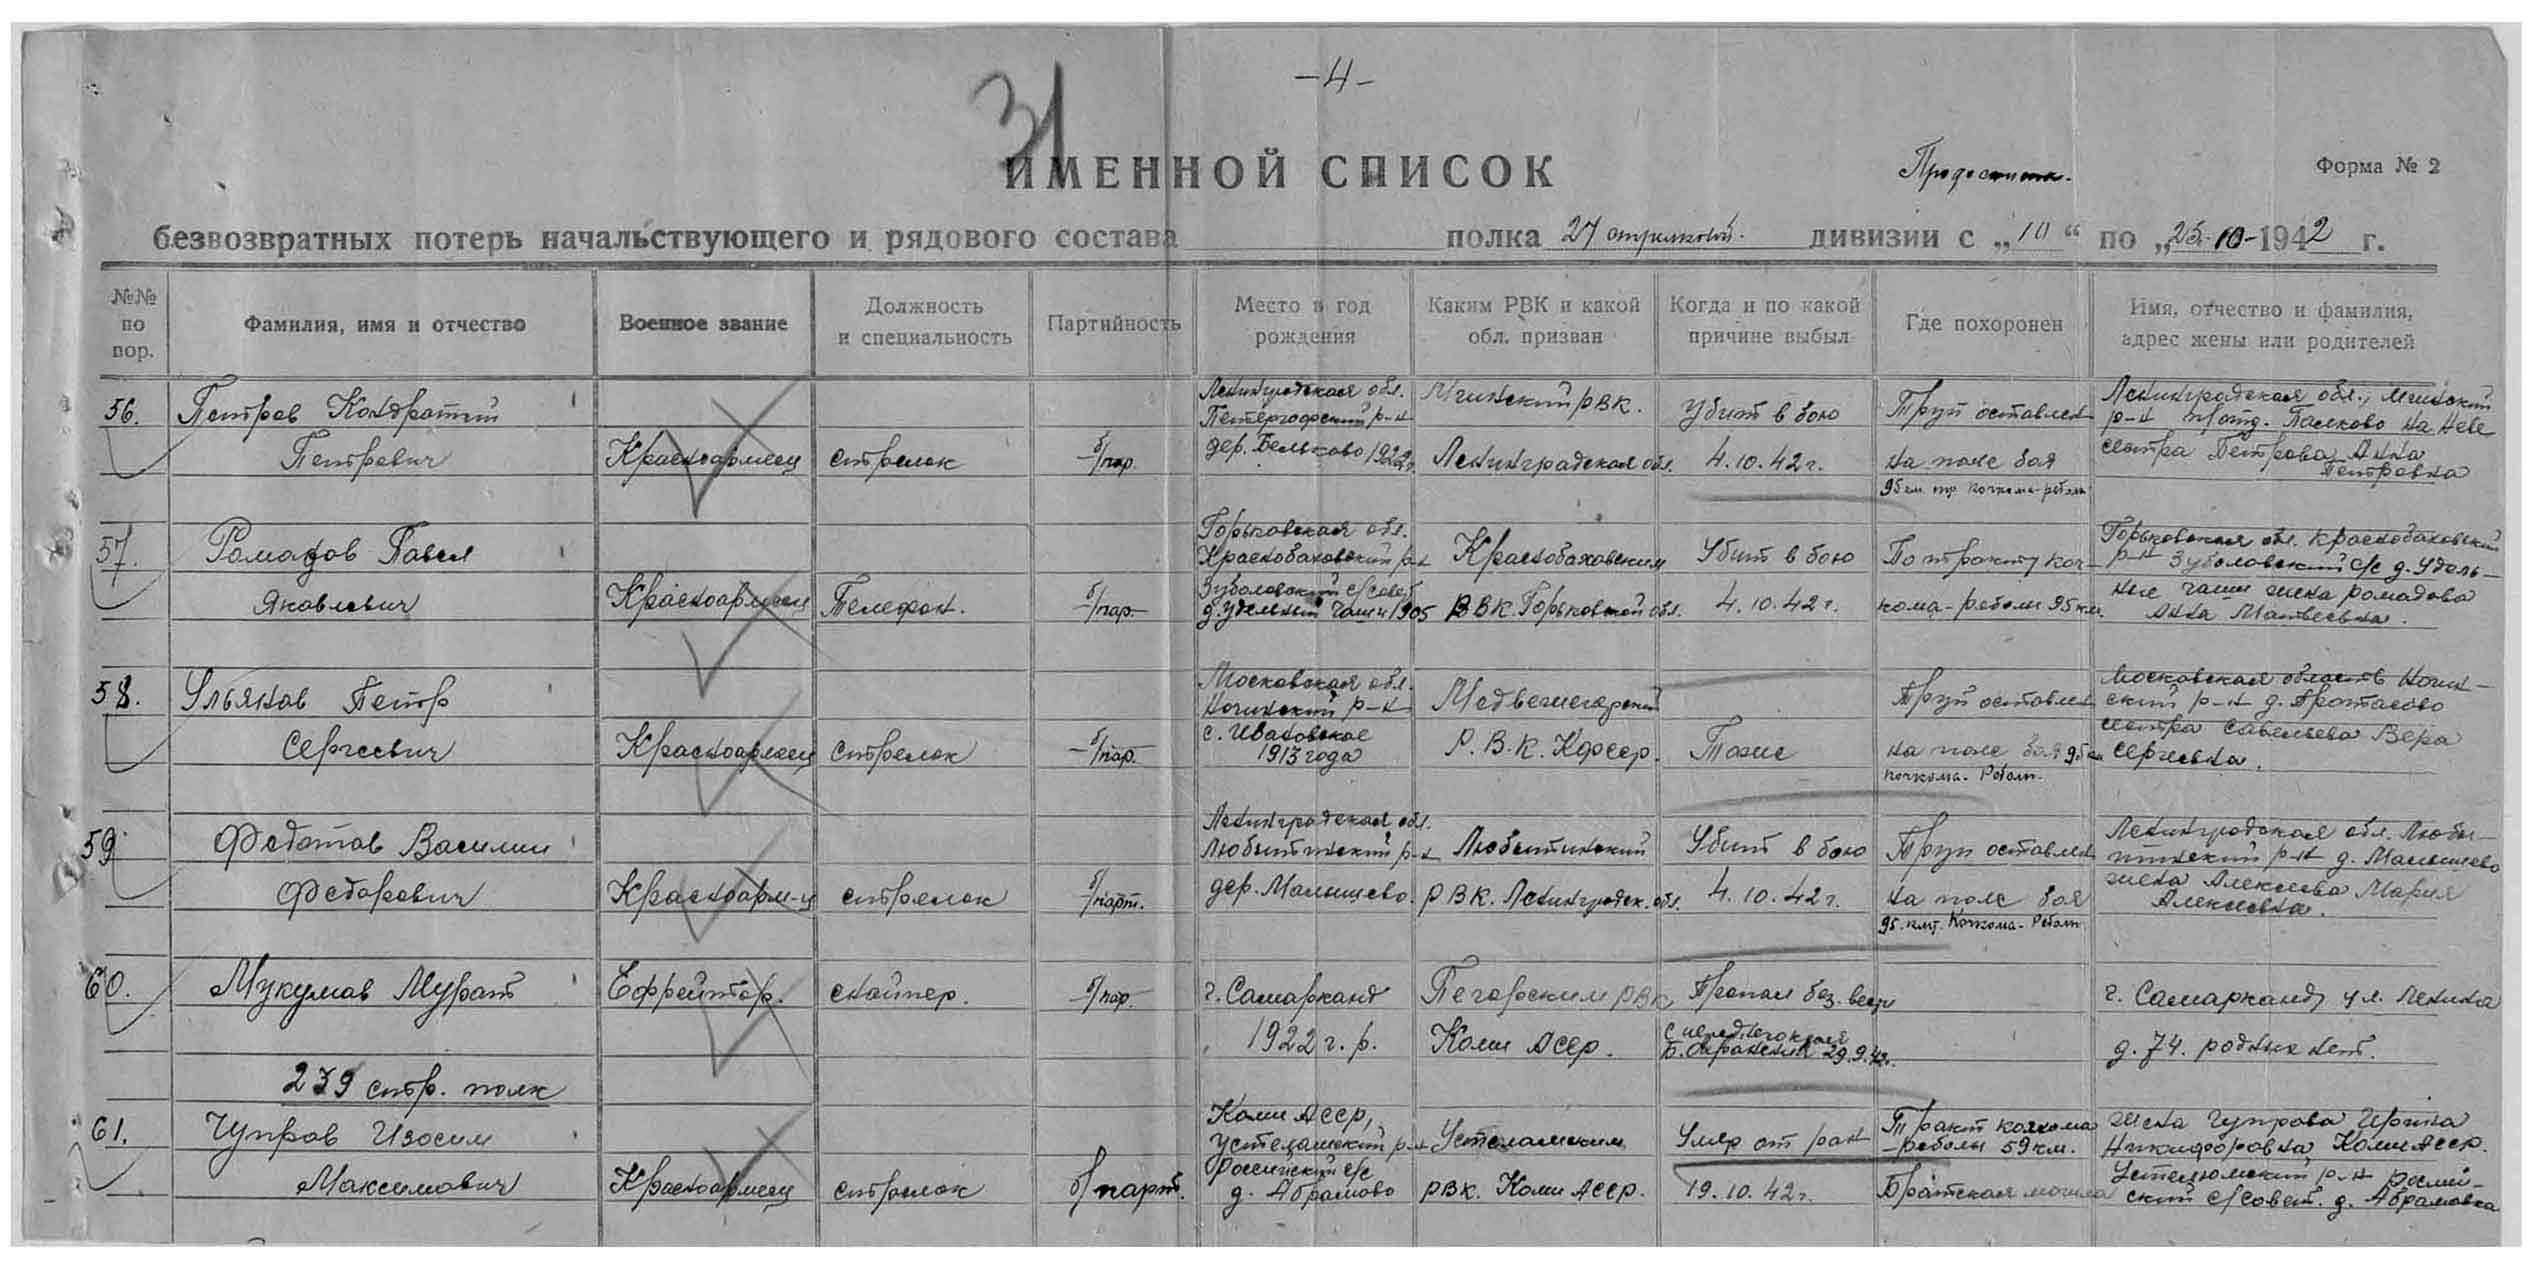 -4-
31
ИМЕННОЙ СПИСОК
Форма № 2
безвозвратных потерь начальствующего и рядового состава полка 27 стрелковой. дивизии с „10“ по „25-10-1942 г.
№№ по пор.
Фамилия, имя и отчество
Военное звание
Должность и специальность
Партийность
Место и год рождения
Каким РВК и какой обл. призван
Когда и по какой причине выбыл
Где похоронен
Имя, отчество и фамилия, адрес жены или родителей
56.
Петров Кондратий
Петрович
Красноармеец
стрелок
б/пар.
Ленинградская обл.
Петергофский р-н
дер. Бельково 1922г.
Мгинский РВК.
Ленинградская обл.
Убит в бою
4.10.42г.
Труп оставлен
на поле боя
95 км. тр. Кочкома-реболы
Ленинградская обл., Мгинский
р-н Палково на Неве
сестра Петрова Анна
Петровна
57.
Ромадов Павел
Яковлевич
Красноармеец
Телефон.
б/пар.
Горьковская обл.
Краснобаковский р-н
Зубовский с/совет
д. Удельный Чащи 1905
Краснобаковским
РВК. Горьковской обл.
Убит в бою
4.10.42г.
По тракту Коч-
кома-реболы 95 км.
Горьковская обл. Краснобаковский
р-н с/с д. Удель-
ные чащи жена Ромадова
Анна Матвеевна.
58.
Ульянов Петр
Сергеевич
Красноармеец
стрелок
б/пар.
Московская обл.
Ногинский р-н
с. Ивановское
1913 года
Медвежегорский
Р.В.К. Кфсср.
Тоже
Труп оставлен
на поле боя 95 км
Кочкома. Ребол.
Московская область Ногин-
ский р-н д. Протасово
сестра Савельева Вера
Сергеевна.
59
Федотов Василий
Федорович
Красноарм-ц
стрелок
б/парт.
Ленинградская обл.
Любытинский р-н
дер. Малышево.
Любытинский
РВК. Ленинградск. обл.
Убит в бою
4.10.42г.
Труп оставлен
на поле боя
95. км. Кочкома-Реболы
Ленинградская обл. Любы-
тинский р-н д. Малышево
жена Алексеева Мария
Алексеевна.
60.
Мукумов Мурат
Ефрейтор.
снайпер.
б/пар.
г. Самарканд
1922 г. р.
Печорским РВК
Коми Асср.
Пропал без. вести
с перед. края
29.9.42г.
г. Самарканд, ул. Ленина
д. 74. родных нет.
239 стр. полк
61.
Чупров Изосим
Максимович
Красноармеец
стрелок
б/парт.
Коми Асср,
Устцилемский р-н
с/с
д. Абрамово
Устцилемским
РВК. Коми Асср.
Умер от ран
19.10.42г.
Тракт Кочкома
-реболы 59 км.
Братская могила
жена Чупрова Ирина
Никифоровна Коми Асср.
р-н
ский с/совет. д. Абрамовка